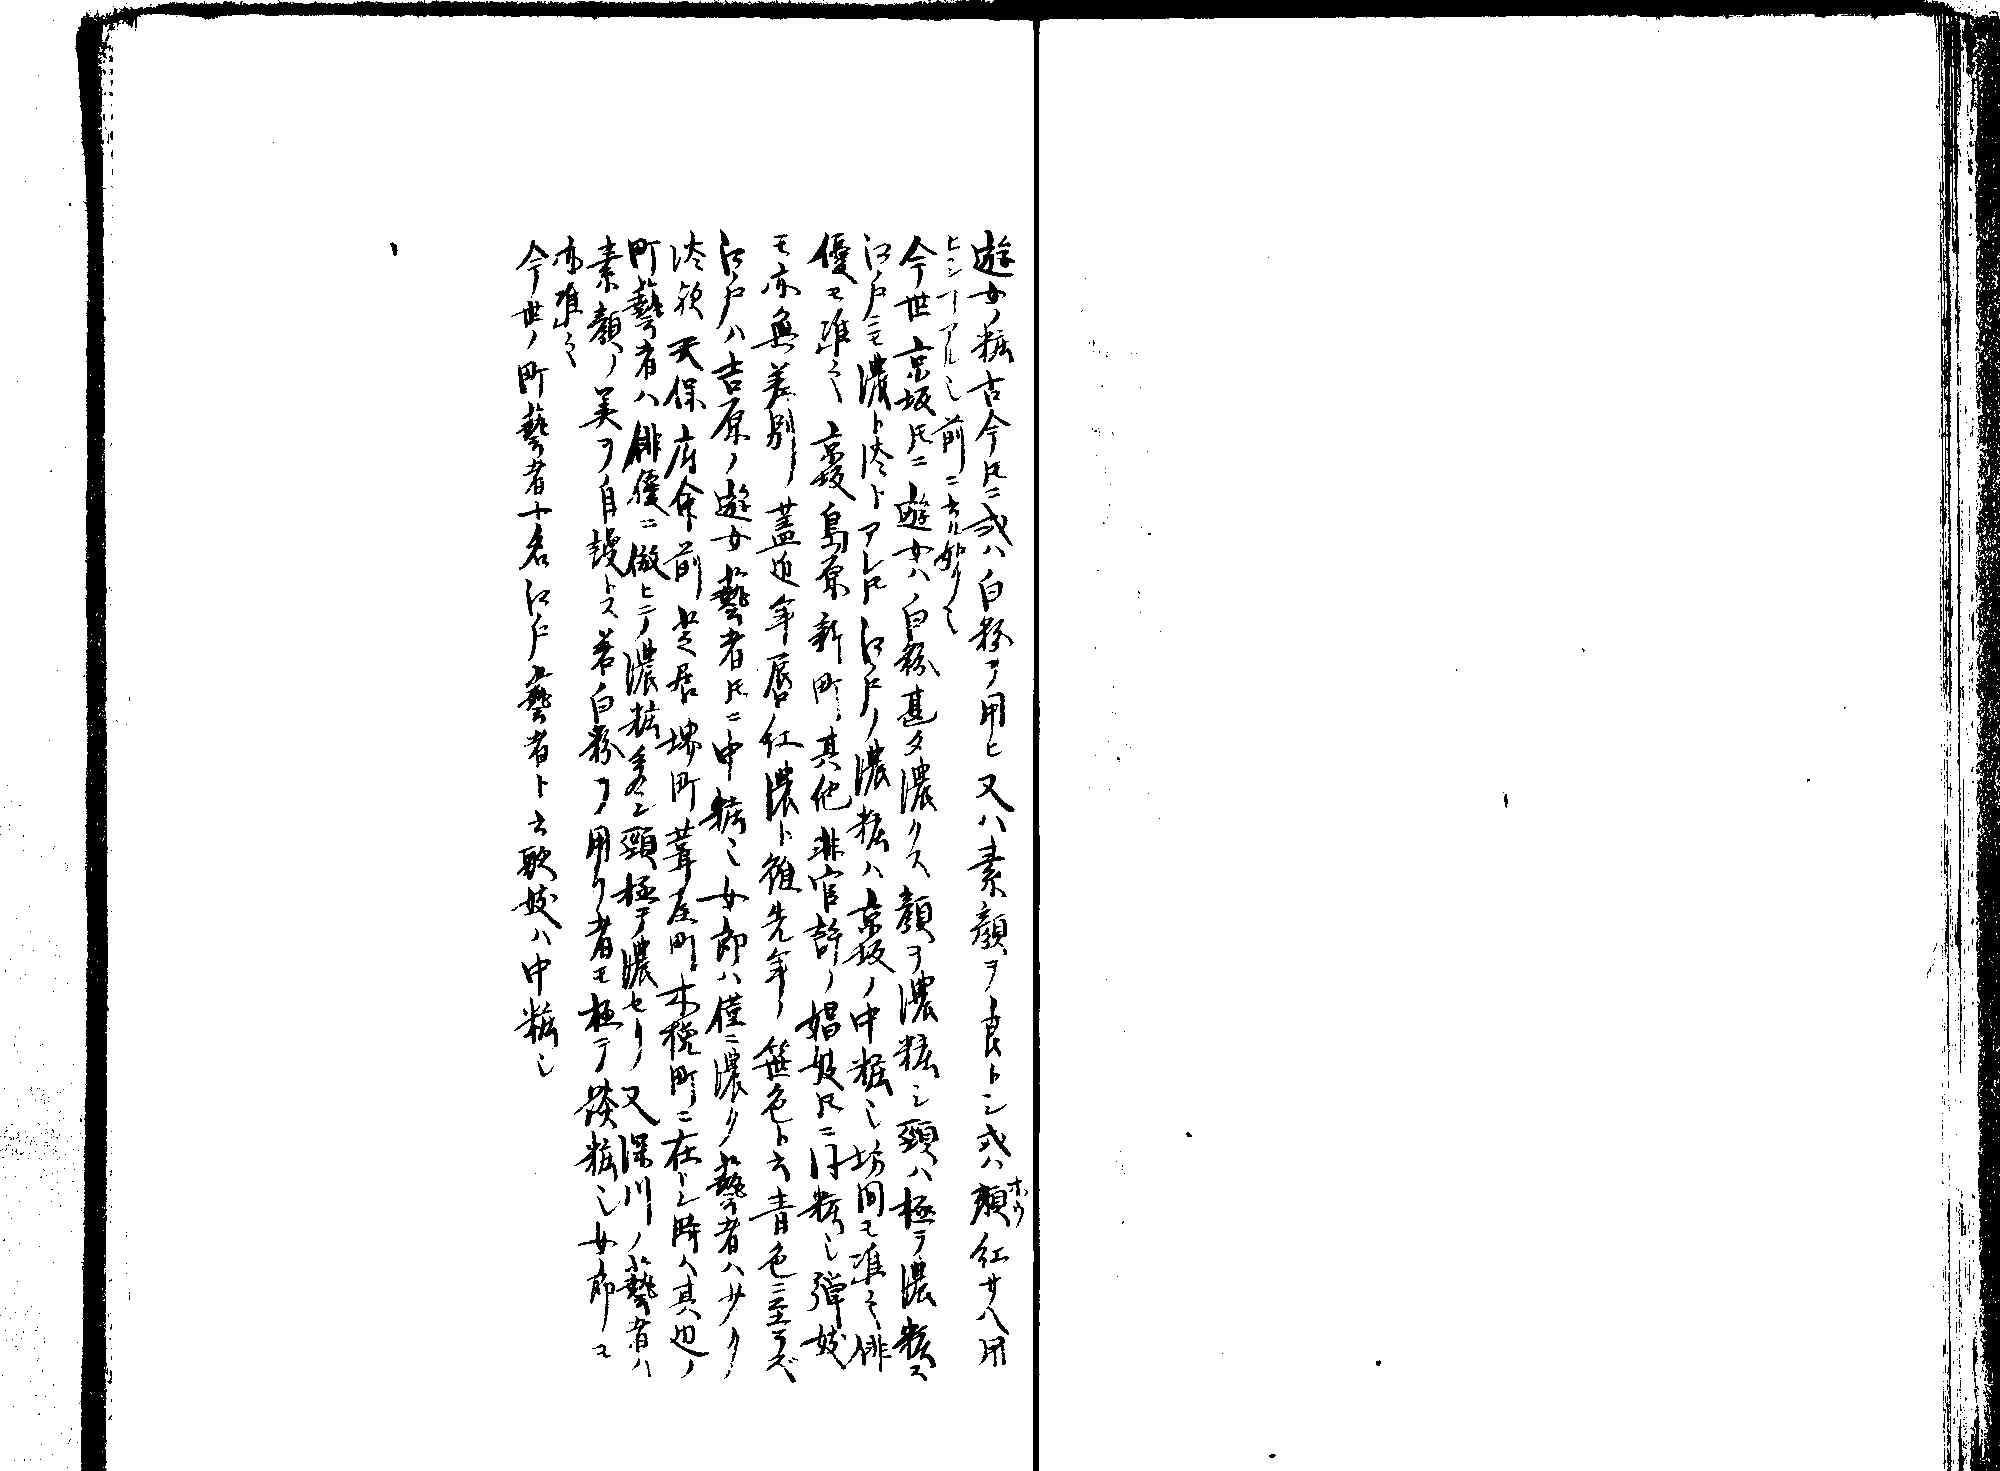 遊女ノ粧古今トモニ或ハ白粉ヲ用ヒ又ハ素顔ヲ良トシ或ハ頬紅サヘ用
ヒシコアル也前ニ云ル如クシ
今世京坂トモニ遊女ハ白粉甚タ濃クス顔ヲ濃粧シ頸ハ極テ濃粧ス
江戸ニモ濃ト淡トアレトモ江戸ノ濃粧ハ京坂ノ中粧也坊間モ准之俳
優モ准之京坂島原新町其他非官許ノ娼妓トモニ同粧也弾妓
モ亦無差別蓋近年唇紅濃ト雖先年ノ笹色ト云青色ニ至ラズ
江戸ハ吉原ノ遊女藝者トモニ中粧也女郎ハ僅ニ濃ク藝者ハ少ク
淡欤天保府命前芝居堺町葺屋町木挽町ニ在シ時ハ其辺ノ
町藝者ハ俳優ニ倣ヒテ濃粧多シ頸極テ濃セリ又深川ノ藝者ハ
素顔ノ美ヲ自謾トス若白粉ヲ用フ者モ極テ淡粧也女郎モ
亦准之
今世ノ町藝者十名江戸藝者ト云歌妓ハ中粧也